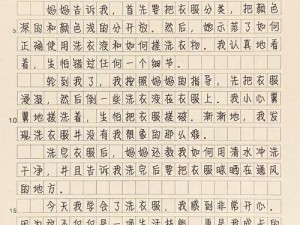 妈妈告诉我，首先要把衣服分类，把颜色
深的和颜色浅的分开。然后，她示范了如何
5
正确使用洗衣液和如何搓洗衣物。我认真地看
着，生怕错过任何一个细节。
轮到我了，我按照妈妈的指导，先把衣服
浸湿，然后倒一些洗衣液在衣服上。我小心翼
10
翼地搓洗着，生怕损坏衣服。渐渐地，我发
现洗衣服并没有我想象的那么难。
洗完衣服后，妈妈还教我如何用清水冲洗
干净，并且告诉我洗完后要把衣服晾晒在通风
的地方。
15
今天我学会了洗衣服，我感到非常开心。